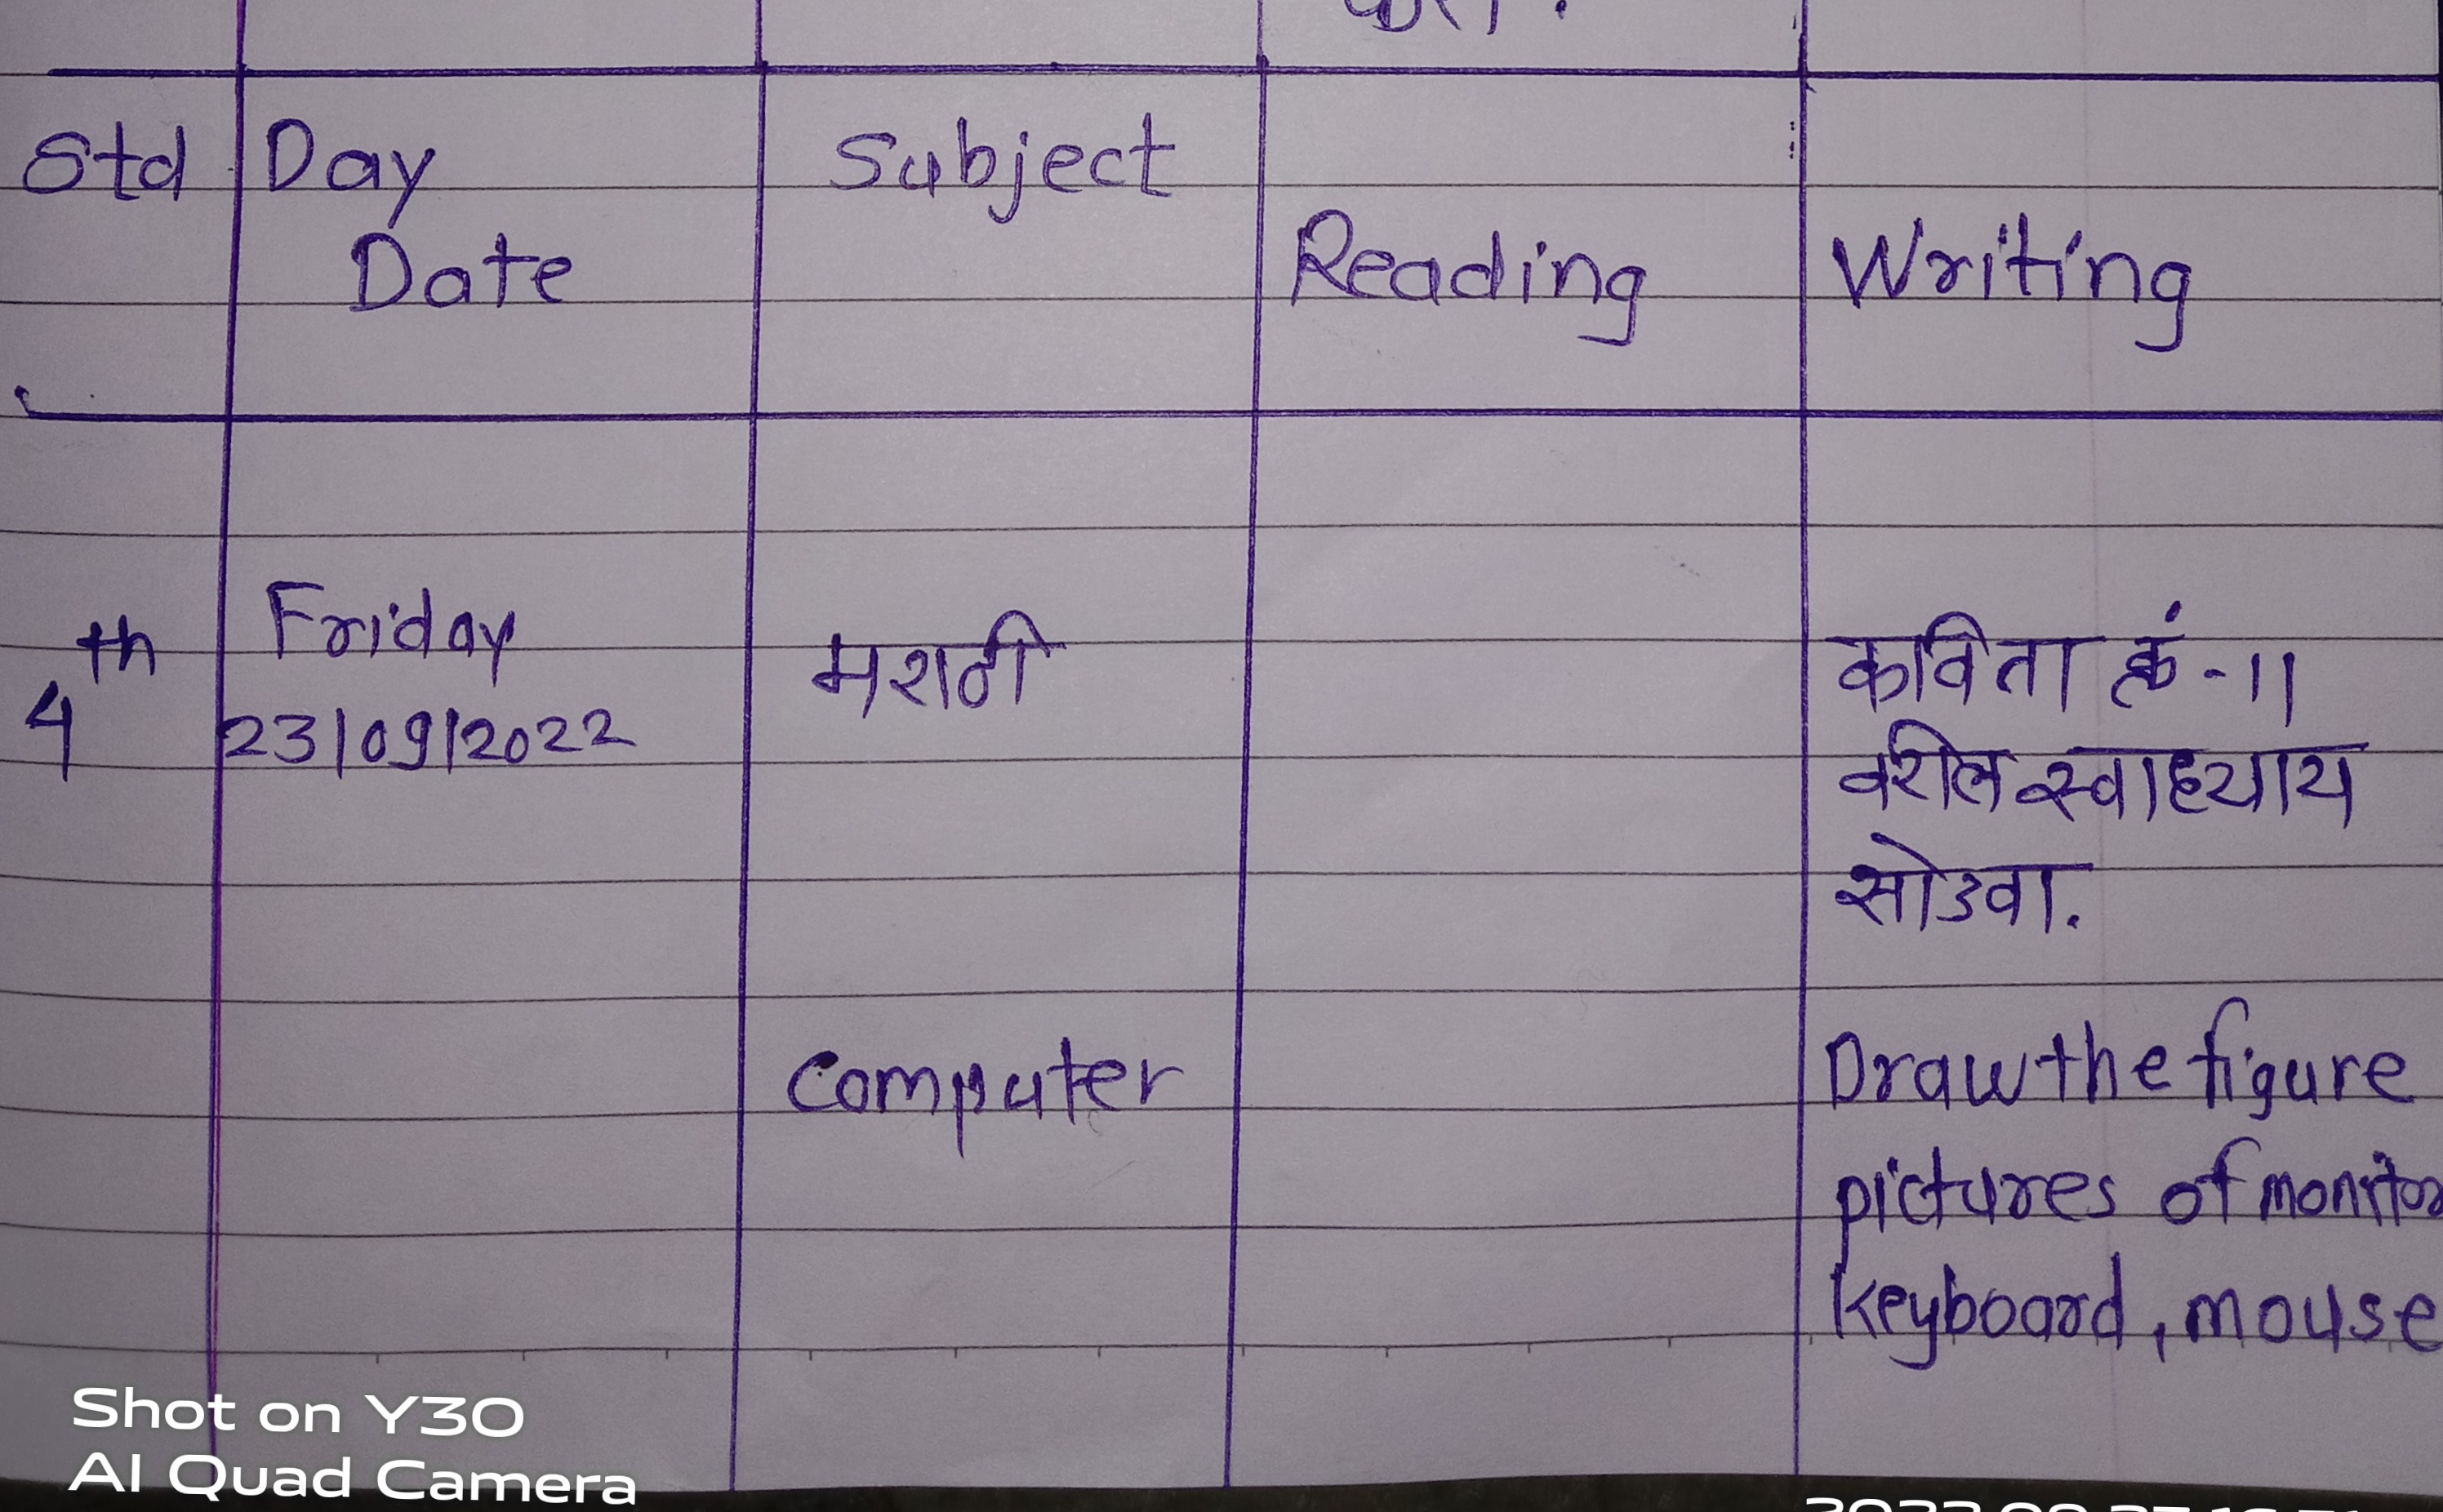 Std Day Subject
Date Reading Writing
4th Friday मराठी कविता क्रं-11
23/09/2022 वरील स्वाध्याय
सोडवा.
Computer Draw the figure
pictures of monitor
keyboard, mouse
Shot on Y30
AI Quad Camera